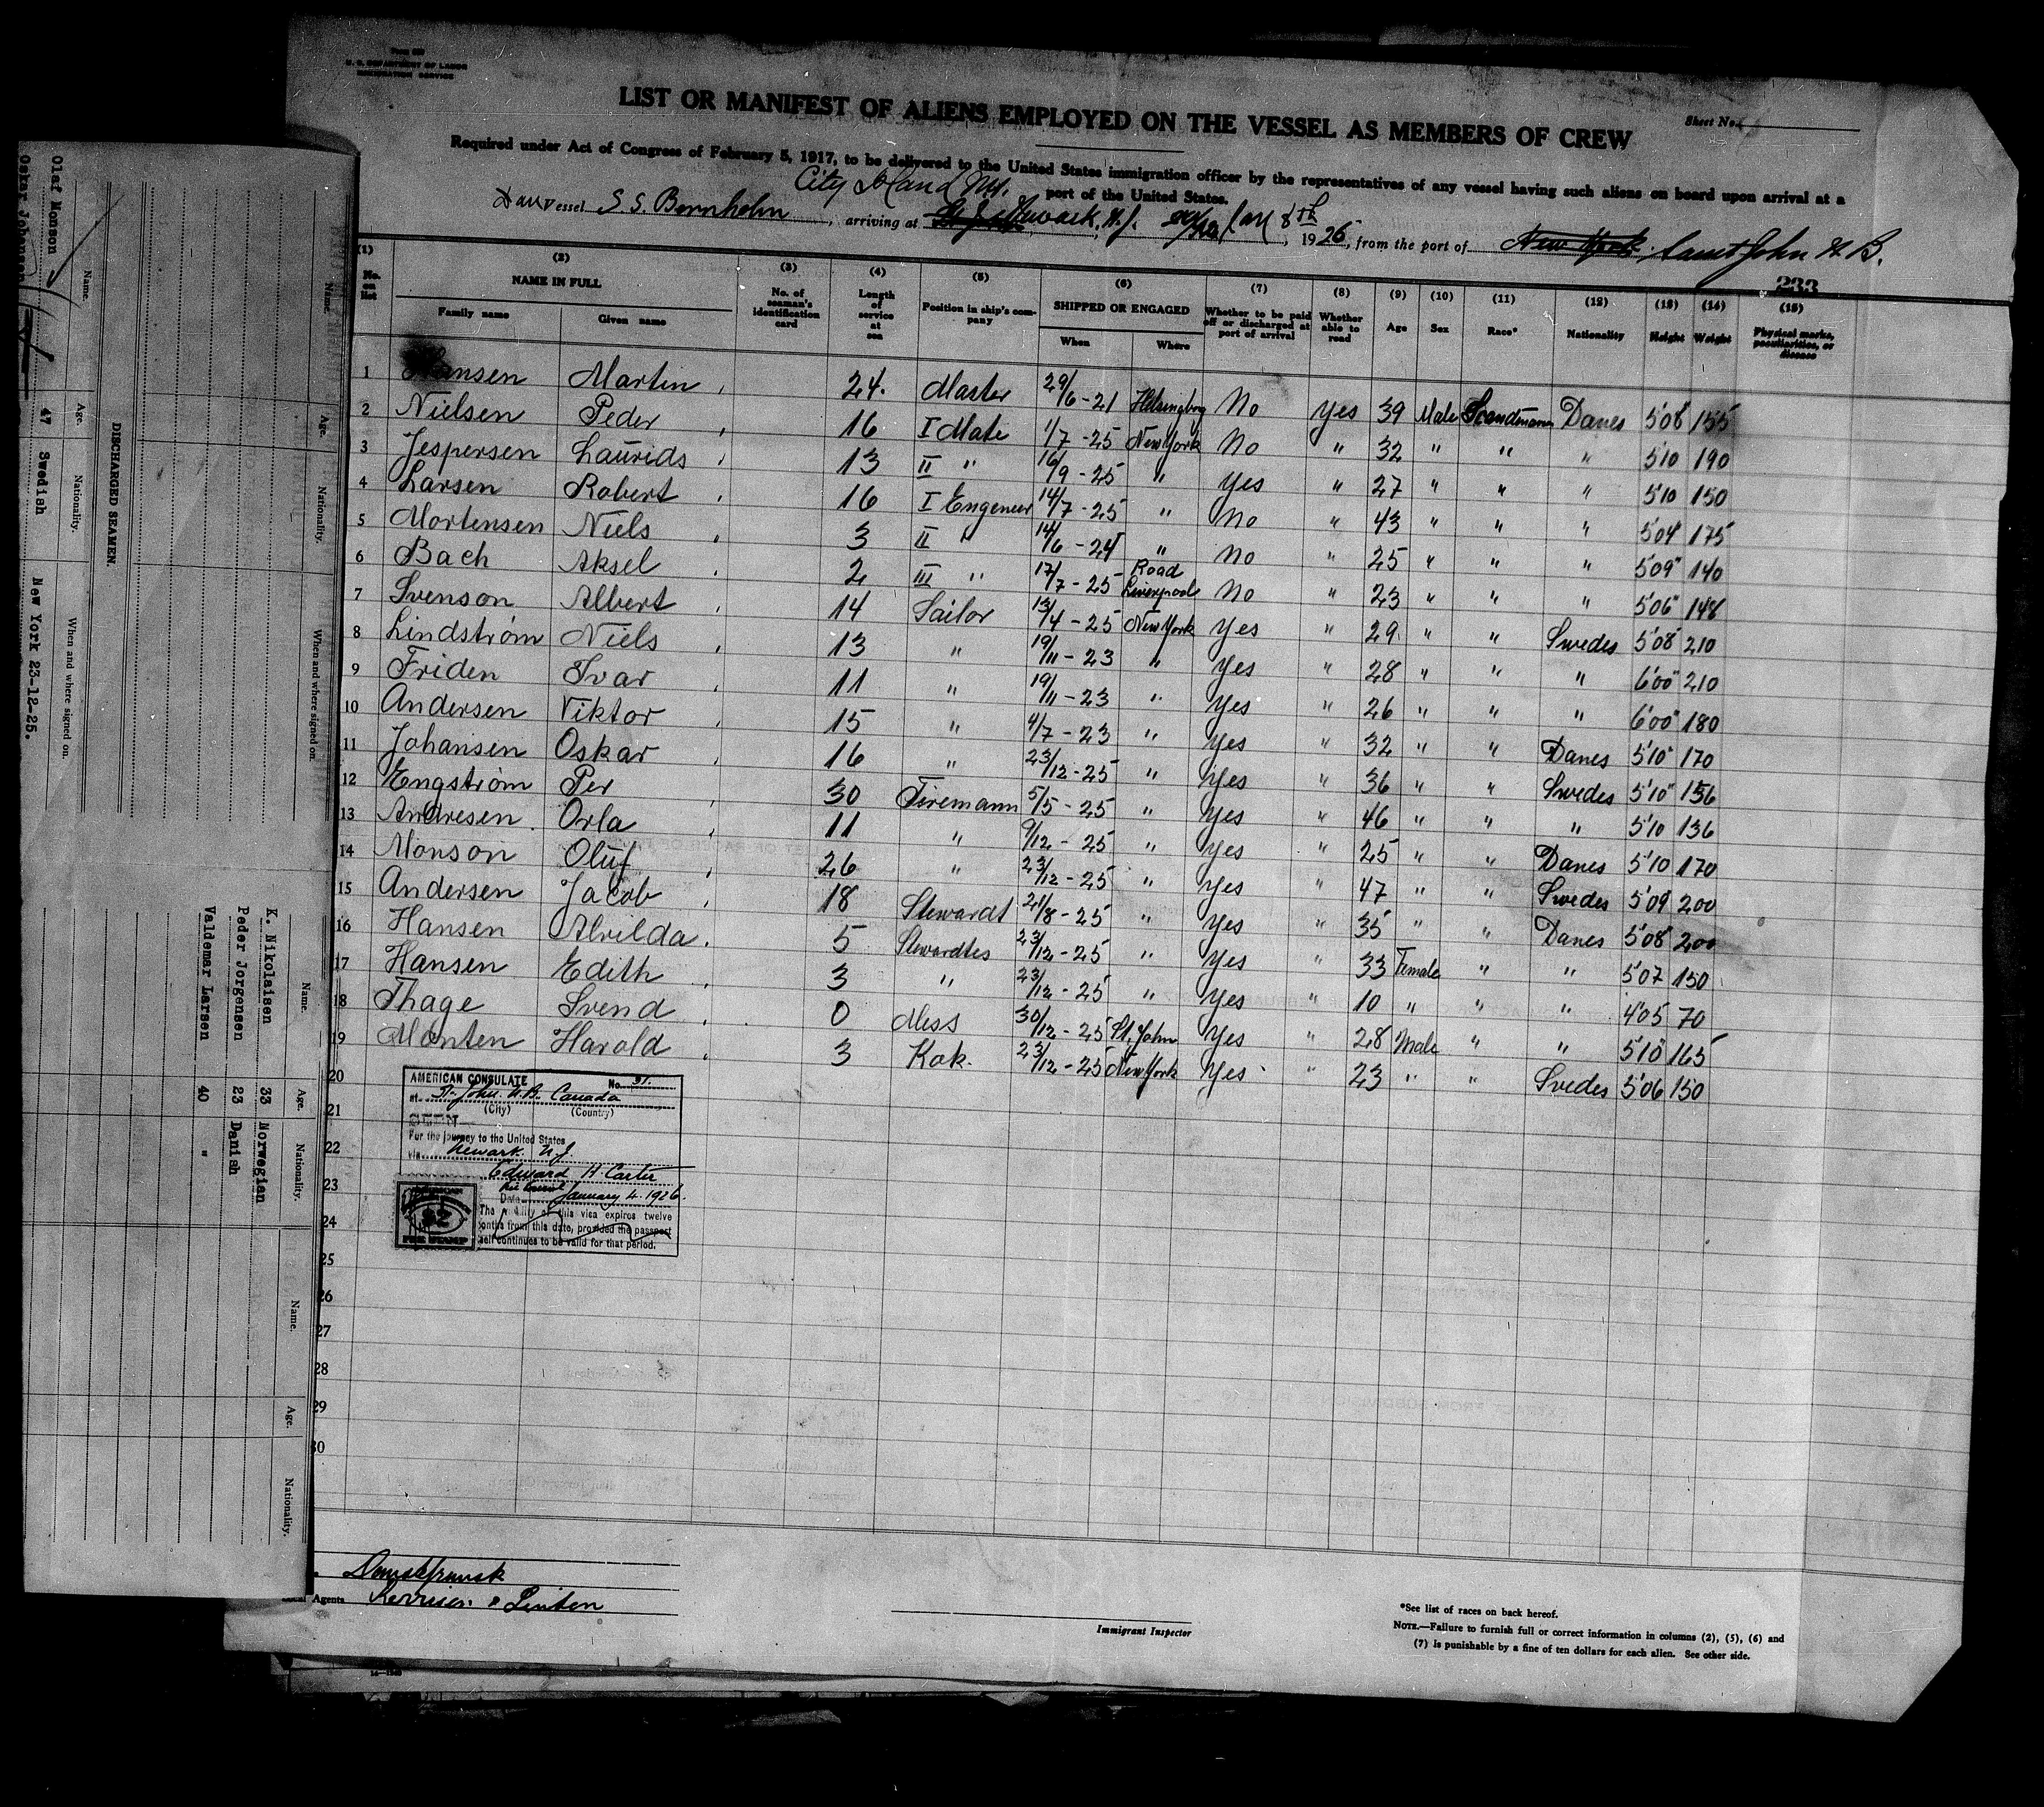 U. S. DEPARTMENT OF LABOR
IMMIGRATION SERVICE
LIST OR MANIFEST OF ALIENS EMPLOYED ON THE VESSEL AS MEMBERS OF CREW
Sheet No.
Required under Act of Congress of February 5, 1917, to be delivered to the United States immigration officer by the representatives of any vessel having such aliens on board upon arrival at a
port of the United States.
City Island NY.
Dan Vessel S. S. Bornholm, arriving at Newark, N.J. Jan 8th, 1926, from the port of New York Saint John N B.
233
(1) (2) (3) (4) (5) (6) (7) (8) (9) (10) (11) (12) (13) (14) (15)
No. on list NAME IN FULL Family name Given name No. of seaman's identification card Length of service at sea Position in ship's company SHIPPED OR ENGAGED When Where Whether to be paid off or discharged at port of arrival Whether able to read Age Sex Race* Nationality Height Weight Physical marks, peculiarities, or disease
1 Hansen Martin 24. Master 29/6-21 Helsingborg No Yes 39 Male Scandinavn Danes 5'08" 155
2 Nielsen Peder 16 I Mate 1/7-25 New York No " 32 " " " 5'10 190
3 Jespersen Laurids 13 II " 16/9-25 " Yes " 27 " " " 5'10 150
4 Larsen Robert 16 I Engeneer 14/7-25 " No " 43 " " " 5'04 175
5 Mortensen Niels 3 II " 14/6-24 " No " 25 " " " 5'09" 140
6 Bach Aksel 2 III " 17/7-25 Road Liverpool No " 23 " " " 5'06" 148
7 Svenson Albert 14 Sailor 13/4-25 New York Yes " 29 " " Swedes 5'08" 210
8 Lindström Niels 13 " 19/11-23 " Yes " 28 " " " 6'00" 210
9 Friden Ivar 11 " 19/11-23 " Yes " 26 " " " 6'00" 180
10 Andersen Viktor 15 " 4/7-23 " Yes " 32 " " Danes 5'10" 170
11 Johansen Oskar 16 " 23/12-25 " Yes " 36 " " Swedes 5'10" 156
12 Engström Per 30 Firemann 5/5-25 " Yes " 46 " " " 5'10 136
13 Andresen Orla 11 " 9/12-25 " Yes " 25 " " Danes 5'10 170
14 Monson Oluf 26 " 23/12-25 " Yes " 47 " " Swedes 5'09 200
15 Andersen Jacob 18 Stewardt 21/8-25 " Yes " 35 " " Danes 5'08" 200
16 Hansen Alvilda 5 Stewardtes 23/12-25 " Yes " 33 Female " " 5'07 150
17 Hansen Edith 3 " 23/12-25 " Yes " 10 " " " 4'05 70
18 Thage Svend 0 Mess 30/12-25 St. John Yes " 28 Male " " 5'10" 165
19 Monten Harald 3 Kok. 23/12-25 New York Yes " 23 " " Svedes 5'06 150
20
21
22
23
24
25
26
27
28
29
30
AMERICAN CONSULATE No. 31.
at St. John N.B. Canada
(City) (Country)
SEEN
For the journey to the United States
via Newark N.J.
Edward H. Carter
Vice Consul
Date January 4. 1926.
The validity of this visa expires twelve
months from this date, provided the passport
self continues to be valid for that period.
$2
FEE STAMP
Agents
Immigrant Inspector
*See list of races on back hereof.
NOTE.—Failure to furnish full or correct information in columns (2), (5), (6) and
(7) is punishable by a fine of ten dollars for each alien. See other side.
DISCHARGED SEAMEN.
Name. Age. Nationality. When and where signed on.
Olaf Monson 47 Swedish New York 23-12-25.
Oskar Johansen
Name. Age. Nationality. When and where signed on.
Name. Age. Nationality.
K. Nikolaisen 33 Norwegian
Peder Jorgensen 23 Danish
Valdemar Larsen 40 "
Name. Age. Nationality.